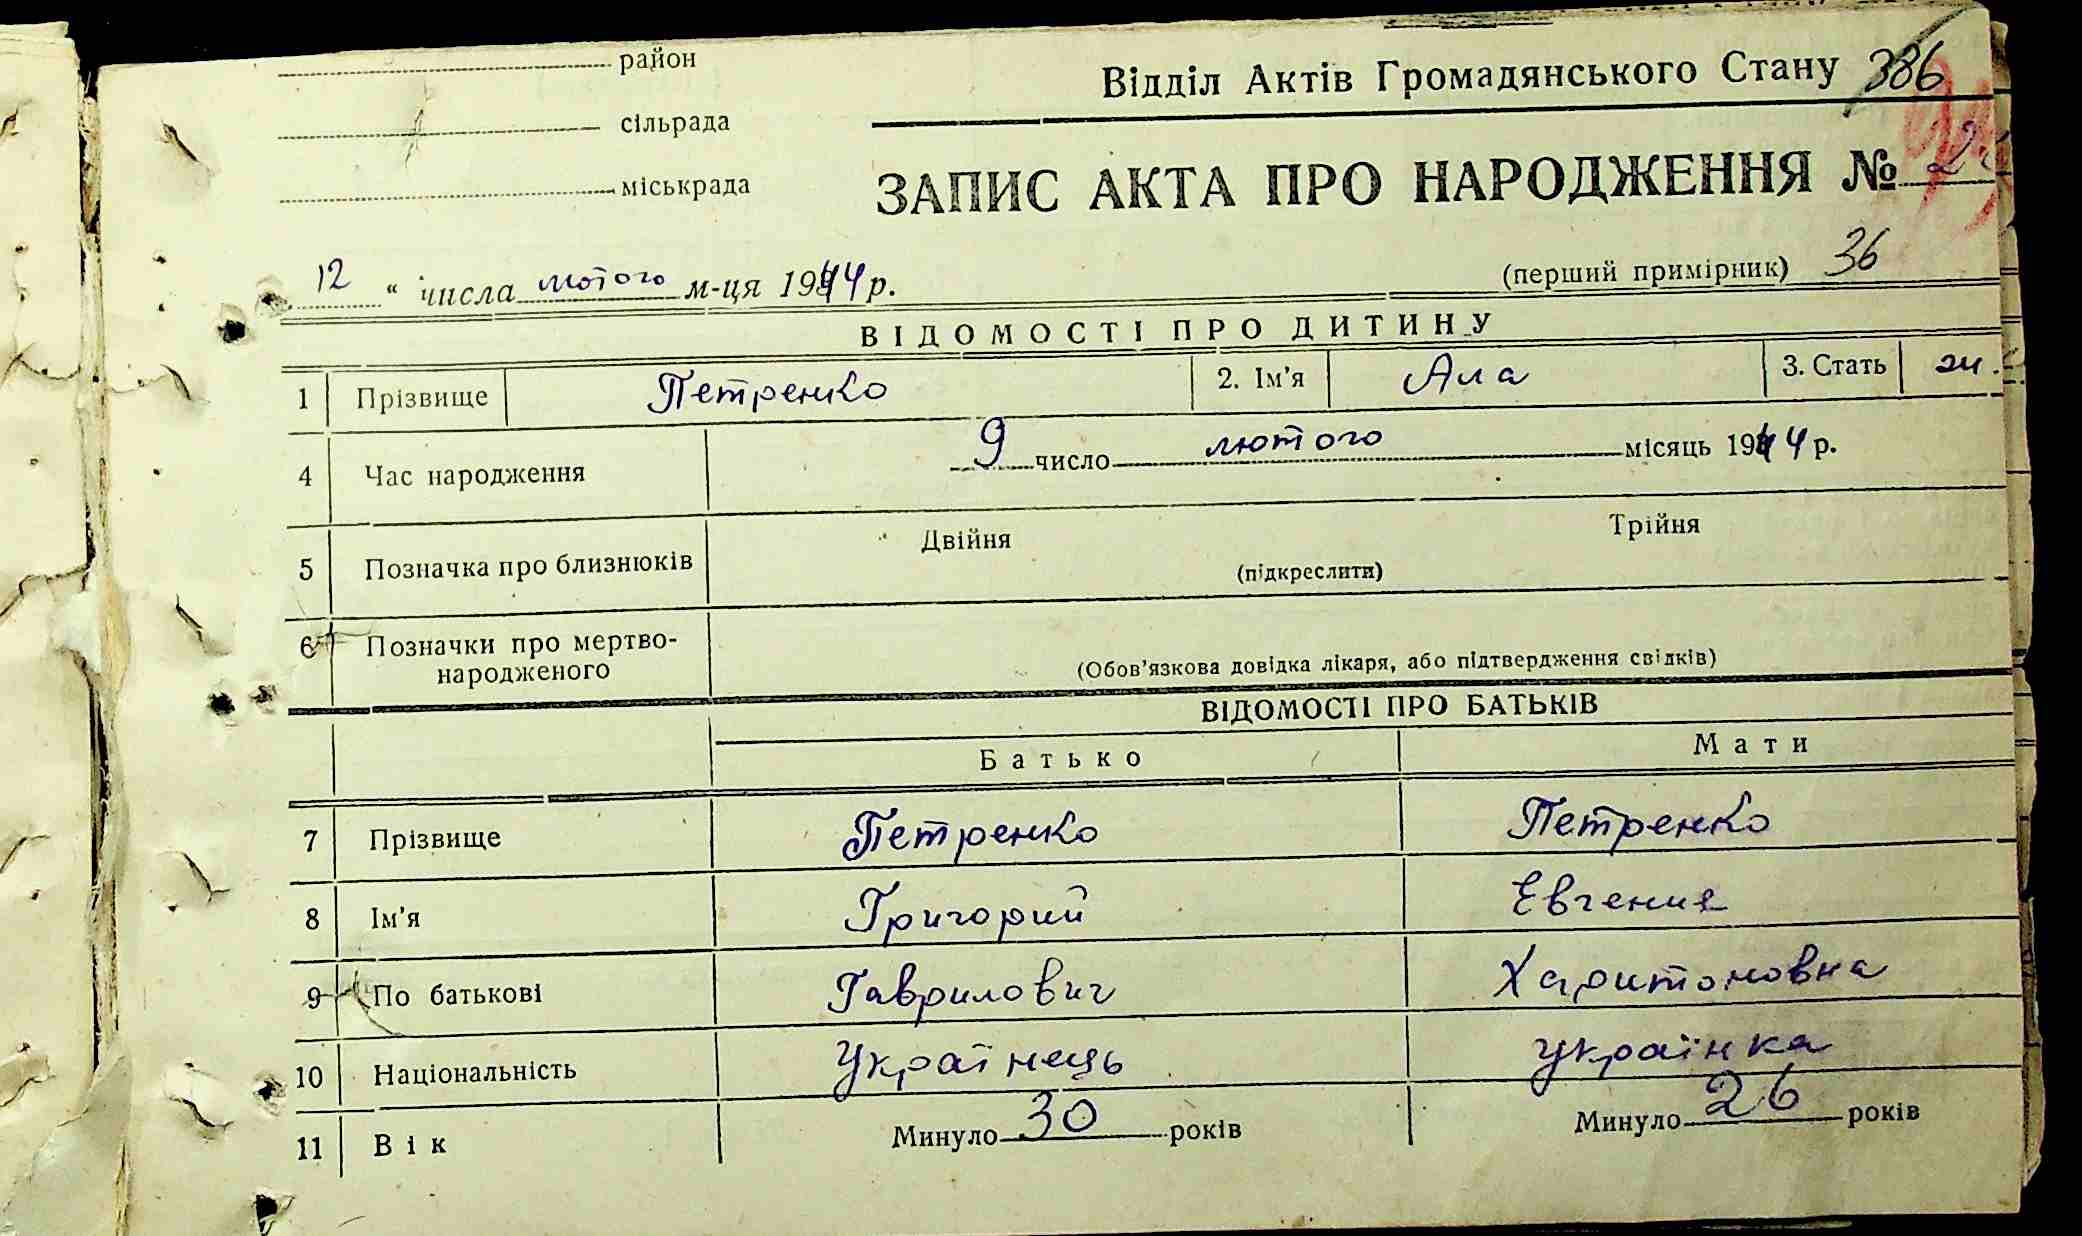 район
Відділ Актів Громадянського Стану 386
сільрада
міськрада
ЗАПИС АКТА ПРО НАРОДЖЕННЯ №
12 " числа лютого м-ця 1944 р.
(перший примірник) 36
ВІДОМОСТІ ПРО ДИТИНУ
1 Прізвище Петренко 2. Ім'я Ала 3. Стать ж.
4 Час народження 9 число лютого місяць 1944 р.
5 Позначка про близнюків Двійня Трійня
(підкреслити)
6 Позначки про мертво-
народженого
(Обов'язкова довідка лікаря, або підтвердження свідків)
ВІДОМОСТІ ПРО БАТЬКІВ
Батько Мати
7 Прізвище Петренко Петренко
8 Ім'я Григорий Евгения
9 По батькові Гаврилович Харитоновна
10 Національність Українець українка
11 Вік Минуло 30 років Минуло 26 років